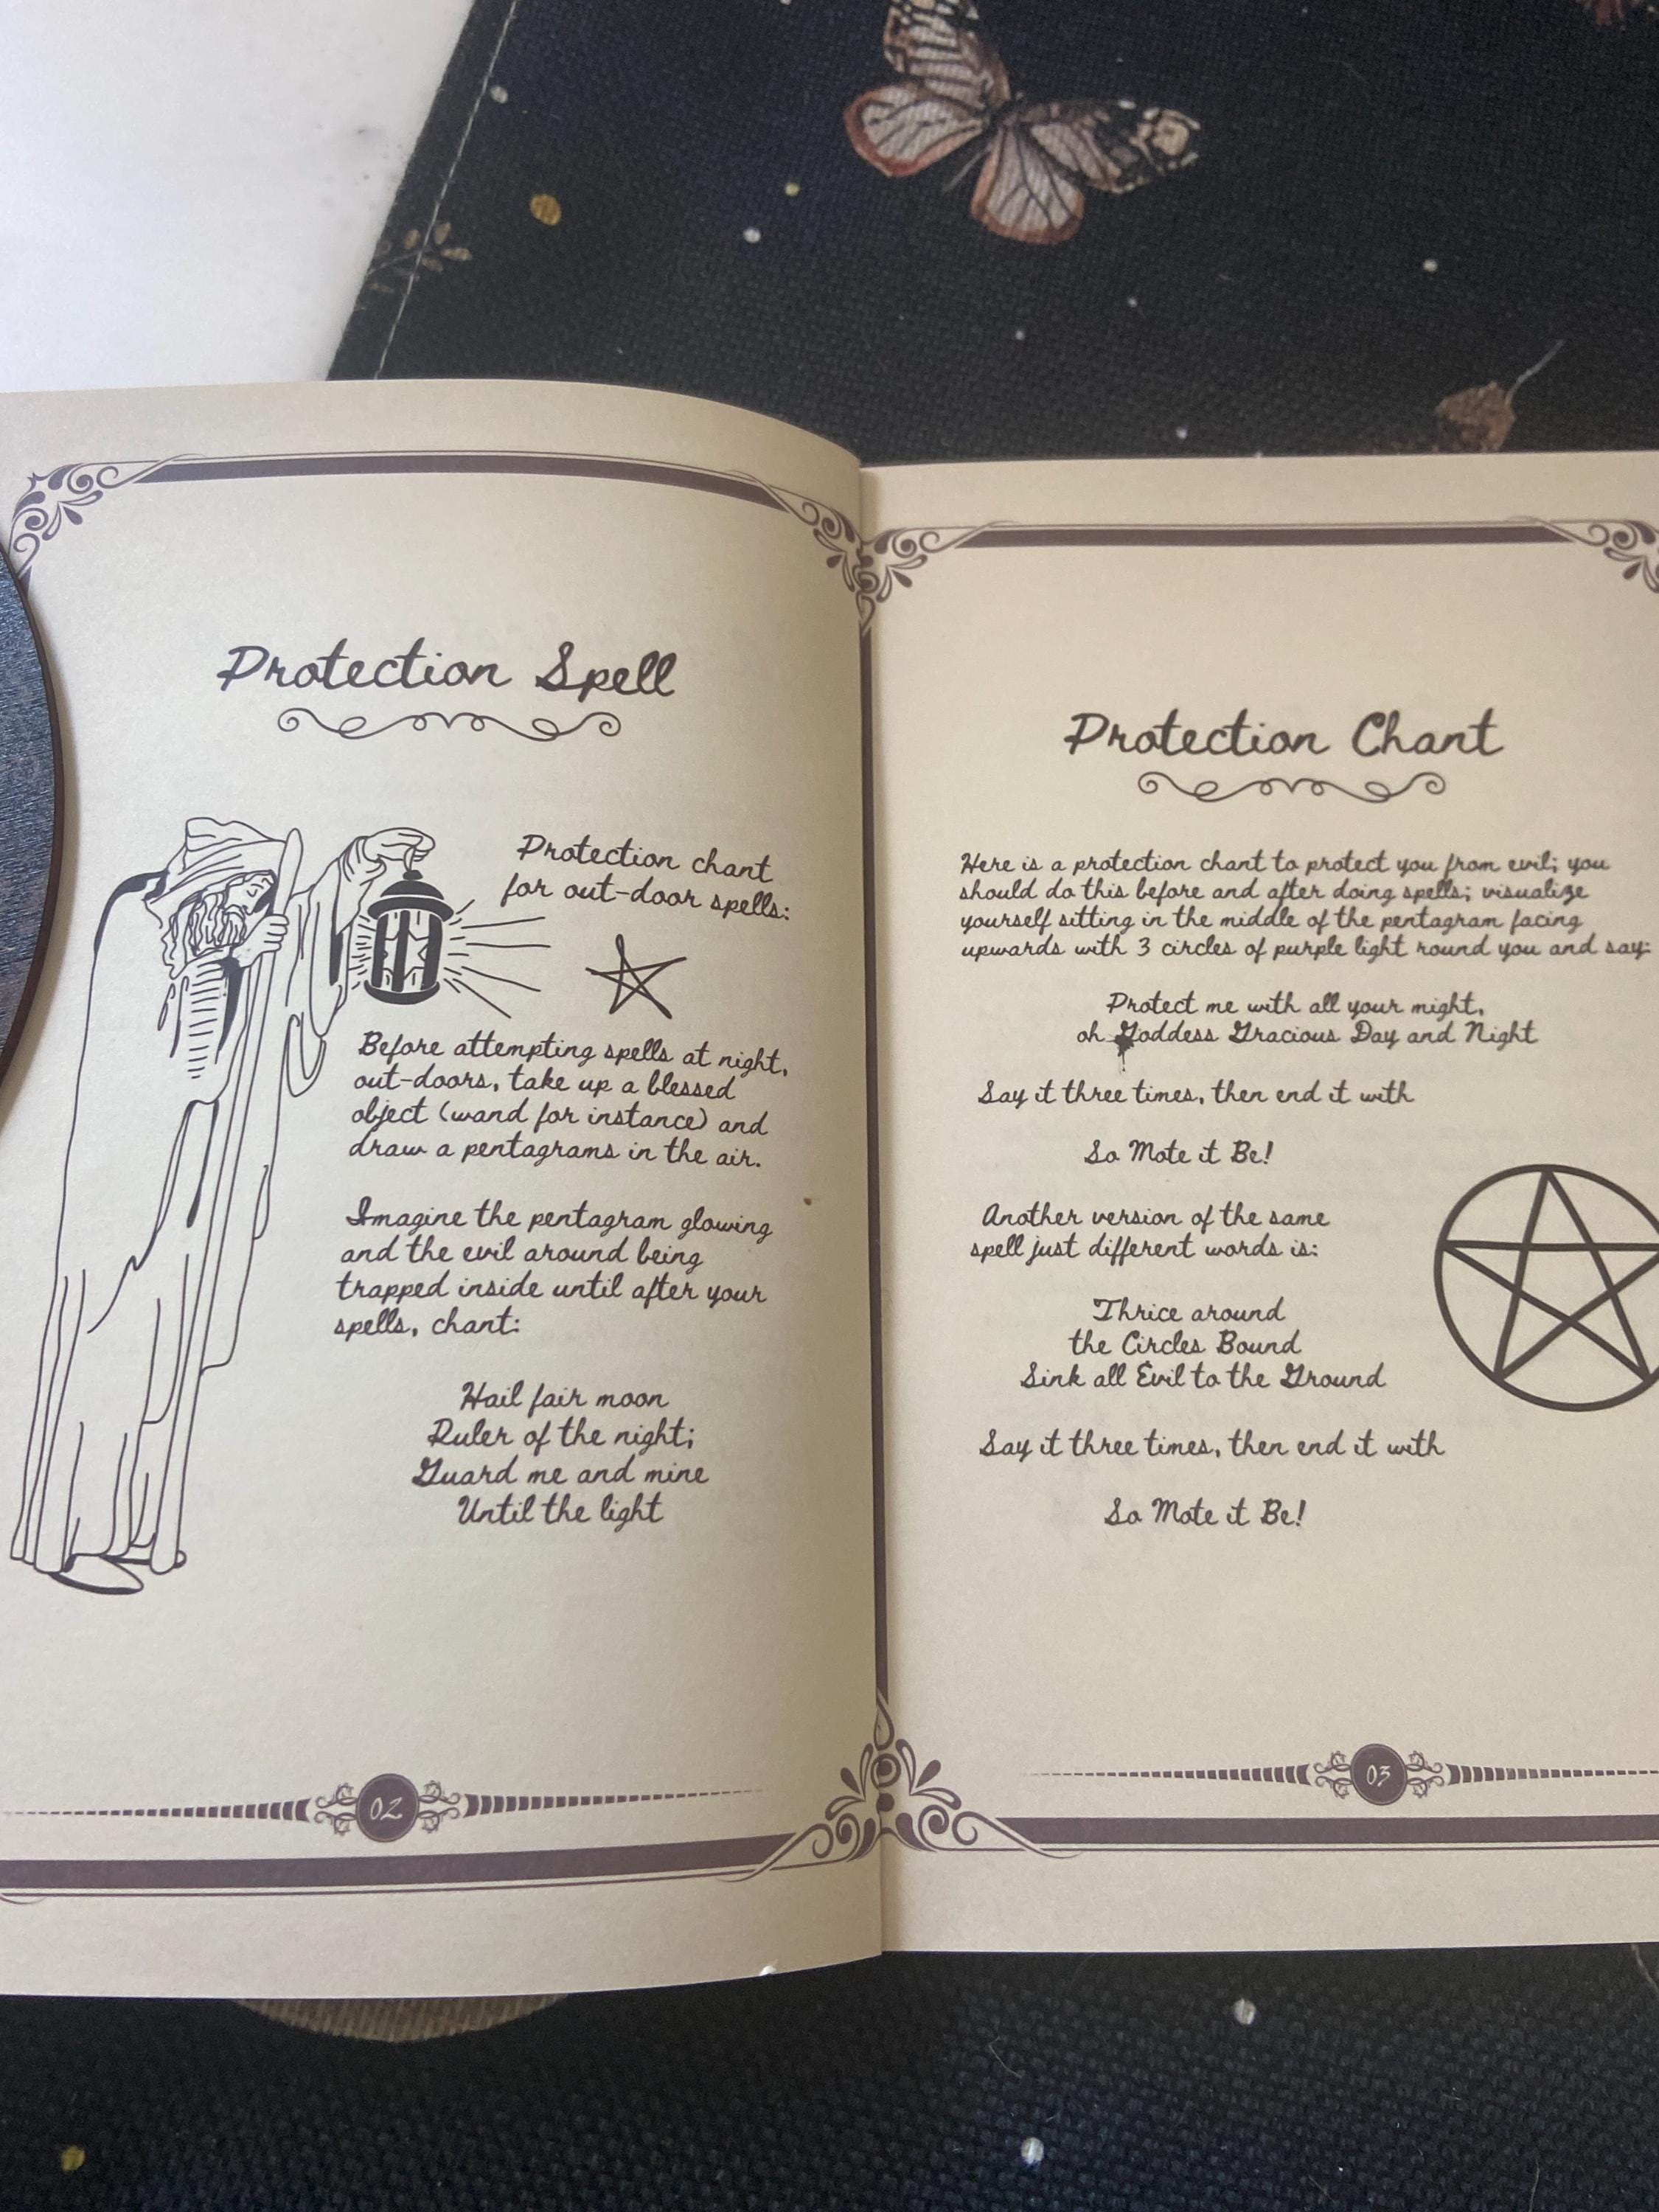 Protection Spell
Protection chant
for out-door spells:
Before attempting spells at night,
out-doors, take up a blessed
object (wand for instance) and
draw a pentagrams in the air.
Imagine the pentagram glowing
and the evil around being
trapped inside until after your
spells, chant:
Hail fair moon
Ruler of the night;
Guard me and mine
Until the light
02
Protection Chant
Here is a protection chant to protect you from evil; you
should do this before and after doing spells; visualize
yourself sitting in the middle of the pentagram facing
upwards with 3 circles of purple light round you and say:
Protect me with all your might,
oh Goddess Gracious Day and Night
Say it three times, then end it with
So Mote it Be!
Another version of the same
spell just different words is:
Thrice around
the Circles Bound
Sink all Evil to the Ground
Say it three times, then end it with
So Mote it Be!
03